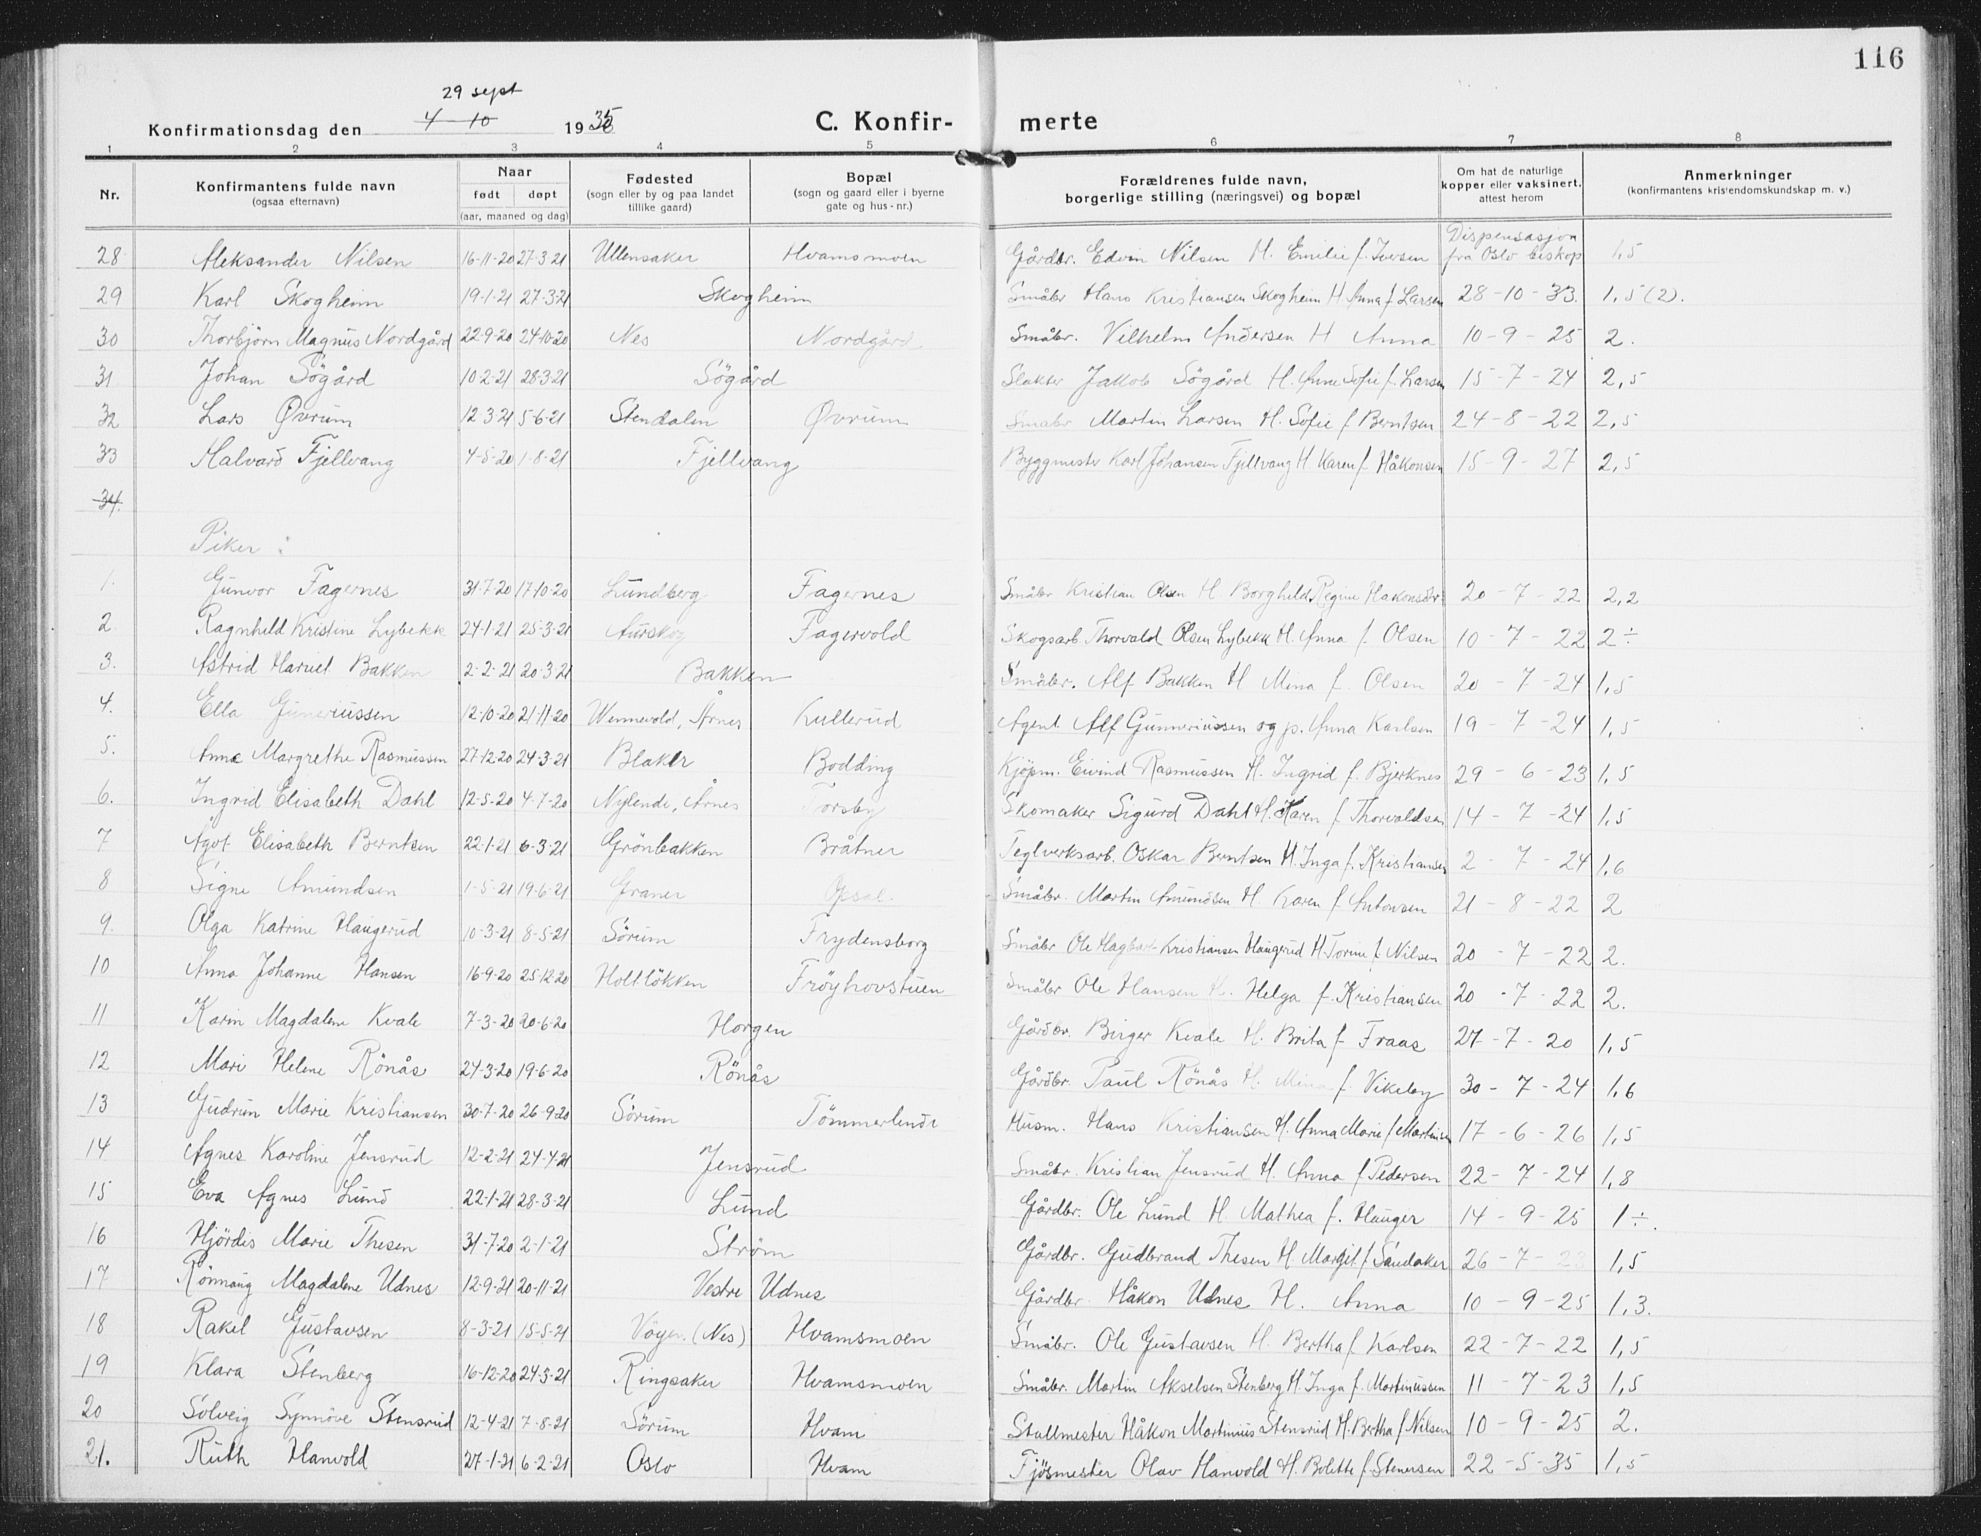 116
29 sept
Konfirmationsdag den 4-10 1935 C. Konfir- merte
1 2 3 4 5 6 7 8
Nr. Konfirmantens fulde navn (ogsaa efternavn) Naar født døpt (aar, maaned og dag) Fødested (sogn eller by og paa landet tillike gaard) Bopæl (sogn og gaard eller i byerne gate og hus-nr.) Forældrenes fulde navn, borgerlige stilling (næringsvei) og bopæl Om hat de naturlige kopper eller vaksinert, attest herom Anmerkninger (konfirmantens kristendomskundskap m. v.)
28 Aleksander Nilsen 16-11-20 27-3-21 Ullensaker Hvamsmoen Gårdbr. Edvin Nilsen H. Emilie f. Iversen Dispensasjon fra Oslo biskop 1,5
29 Karl Skogheim 19-1-21 27-3-21 Skogheim Småbr Hans Kristiansen Skogheim H Anna f. Larsen 28-10-33. 1,5 (2).
30 Thorbjørn Magnus Nordgård 22-9-20 24-10-20 Nes Nordgård Småbr. Vilhelm Andersen H Anna 10-9-25 2.
31 Johan Sögård 10-2-21 28-3-21 Sögård Slakter Jakob Sögård H. Anne Sofie f. Larsen 15-7-24 2,5
32 Lars Øvrum 12-3-21 5-6-21 Stendalen Øvrum Småbr Martin Larsen H. Sofie f Berntsen 24-8-22 2,5
33 Halvard Fjellvang 4-5-20 1-8-21 Fjellvang Byggmester Karl Johansen Fjellvang H Karen f. Håkonsen 15-9-27 2,5
34.
Piker:
1. Gunvor Fagernes 31-7-20 17-10-20 Lundberg Fagernes Småbr Kristian Olsen H. Borghild Regine Hakonsdtr 20-7-22 2,2
2. Ragnhild Kristine Lybekk 24-1-21 25-3-21 Aurskog Fagervold Skogsarb Thorvald Olsen Lybekk H. Anna f. Olsen 10-7-22 2÷
3. Astrid Harriet Bakken 2-2-21 20-3-21 Bakken Småbr. Alf Bakken H Mina f. Olsen 20-7-24 1,5
4. Ella Guneriussen 12-10-20 21-11-20 Wennevold, Årnes Kullerud Agent Alf Gunneriussen og p. Anna Karlsen 19-7-24 1,5
5. Anne Margrethe Rasmussen 27-12-20 24-3-21 Blaker Bodding Kjöpm. Eivind Rasmussen H. Ingrid f. Bjerknes 29-6-23 1,5
6. Ingrid Elisabeth Dahl 12-5-20 4-7-20 Nylende, Årnes Torsby Skomaker Sigurd Dahl H. Karen f Thorvaldsen 14-7-24 1,5
7 Agot Elisabeth Berntsen 22-1-21 6-3-21 Grönbakken Bråtner Teglverksarb. Oskar Berntsen H. Inga f. Kristiansen 2-7-24 1,6
8 Signe Amundsen 1-5-21 19-6-21 Graner Opsal Småbr. Martin Amundsen H. Karen f Antonsen 21-8-22 2
9. Olga Katrine Haugerud 10-3-21 8-5-21 Sörum Frydensborg Småbr Ole Hagbart Kristiansen Haugerud H. Torine f. Nilsen 20-7-22 2.
10 Anna Johanne Hansen 16-9-20 25-12-20 Holtlökken Fröyhovstuen Småbr Ole Hansen H. Helga f. Kristiansen 20-7-22 2.
11 Karin Magdalene Kvale 7-3-20 20-6-20 Horgen Gårdbr. Birger Kvale H. Brita f. Fraas 27-7-20 1,5
12 Mari Helene Rönås 24-3-20 19-6-20 Rönås Gårdbr. Paul Rönås H. Mina f. Vikeby 30-7-24 1,6
13 Gudrun Marie Kristiansen 30-7-20 26-9-20 Sörum Tömmerlende Husm. Hans Kristiansen H. Anna Marie f Martinsen 17-6-26 1,5
14 Agnes Karoline Jensrud 12-2-21 24-4-21 Jensrud Småbr. Kristian Jensrud H. Anna f Pedersen 22-7-24 1,8
15 Eva Agnes Lund 22-1-21 28-3-21 Lund Gårdbr. Ole Lund H. Mathea f. Hauger 14-9-25 1÷.
16 Hjördis Marie Thesen 31-7-20 2-1-21 Ström Gårdbr. Gudbrand Thesen H Margit f Sandaker 26-7-23 1,5
17 Rönnaug Magdalene Udnes 12-9-21 20-11-21 Vestre Udnes Gårdbr. Håkon Udnes H. Anna 10-9-25 1,3.
18 Rakel Gustavsen 8-3-21 15-5-21 Vöyen (Nes) Hvamsmoen Småbr. Ole Gustavsen H. Bertha f Karlsen 22-7-22 1,5
19 Klara Stenberg 16-12-20 24-3-21 Ringsaker Hvamsmoen Småbr. Martin Akselsen Stenberg H. Inga f. Martinussen 11-7-23 1,5
20 Solveig Synnöve Stensrud 12-4-21 7-8-21 Sörum Hvam Stallmester Håkon Martinius Stensrud H. Bertha f Nilsen 10-9-25 2.
21. Ruth Hanvold 27-1-21 6-2-21 Oslo Hvam Fjösmester Olav Hanvold H. Bolette f. Stenersen 22-5-35 1,5